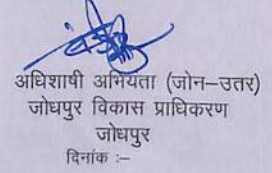 अधिशाषी अभियंता (जोन–उतर)
जोधपुर विकास प्राधिकरण
जोधपुर
दिनांक :–